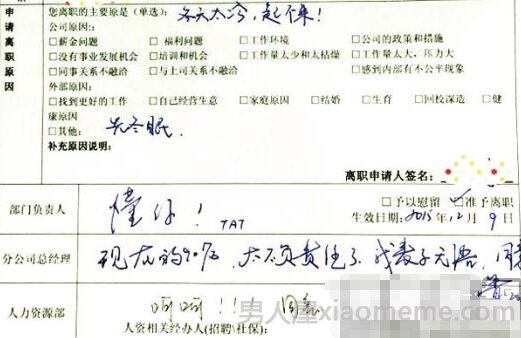 申请离职原因
您离职的主要原是(单选): 冬天太冷,起不来!
公司原因:
□薪金问题 □福利问题 □工作环境 □公司的政策和措施
□没有事业发展机会 □培训和机会 □工作量太少和太枯燥 □工作量太大,压力大
□同事关系不融洽 □与上司关系不融洽 □感到内部有不公平现象
外部原因:
□找到更好的工作 □自己经营生意 □家庭原因 □结婚 □生育 □回校深造 □健
康原因
□其他: 去冬眠.
补充原因说明:
离职申请人签名:
部门负责人
懂你! TAT
□予以慰留 准予离职
生效日期: 2015年12月9日
分公司总经理
现在的90后,太不负责任了,我表示无语,同意
人力资源部
呵呵!!同意
人资相关经办人(招聘\社保):
男人屋xiaomeme.com